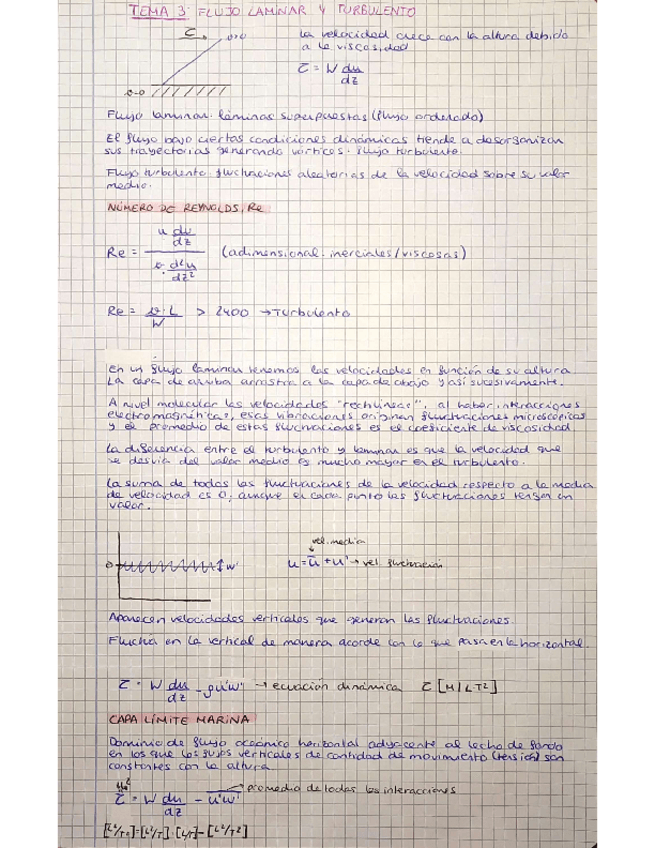 TEMA 3: FLUJO LAMINAR Y TURBULENTO
la velocidad crece con la altura debido
a la viscosidad
τ = W du/dz
Flujo laminar: láminas superpuestas (flujo ordenado)
El flujo bajo ciertas condiciones dinámicas tiende a desorganizar
sus trayectorias generando vórtices. flujo turbulento.
Flujo turbulento: fluctuaciones aleatorias de la velocidad sobre su valor
medio.
NÚMERO DE REYNOLDS, Re
Re = (adimensional. inerciales/viscosas)
Re = L / W > 2400 → Turbulento
en un flujo laminar tenemos las velocidades en función de su altura.
La capa de arriba arrastra a la capa de abajo y así sucesivamente.
A nivel molecular las velocidades "rectilíneas", al haber interacciones
electromagnéticas, esas vibraciones originan fluctuaciones microscópicas
y el promedio de estas fluctuaciones es el coeficiente de viscosidad
La diferencia entre el turbulento y laminar es que la velocidad que
se desvía del valor medio es mucho mayor en el turbulento.
La suma de todas las fluctuaciones de la velocidad respecto a la media
de velocidad es 0, aunque en cada punto las fluctuaciones tengan un
valor.
vel. media
0 w' u = ū + u' → vel. fluctuación
Aparecen velocidades verticales que generan las fluctuaciones.
Fluctúa en la vertical de manera acorde con lo que pasa en la horizontal.
τ = W du/dz - ρu'w' → ecuación dinámica τ [M/LT²]
CAPA LÍMITE MARINA
Dominio de flujo oceánico horizontal adyacente al lecho de fondo
en los que los flujos verticales de cantidad de movimiento (tensión) son
constantes con la altura.
τ = W du/dz - u'w' → promedio de todas las interacciones